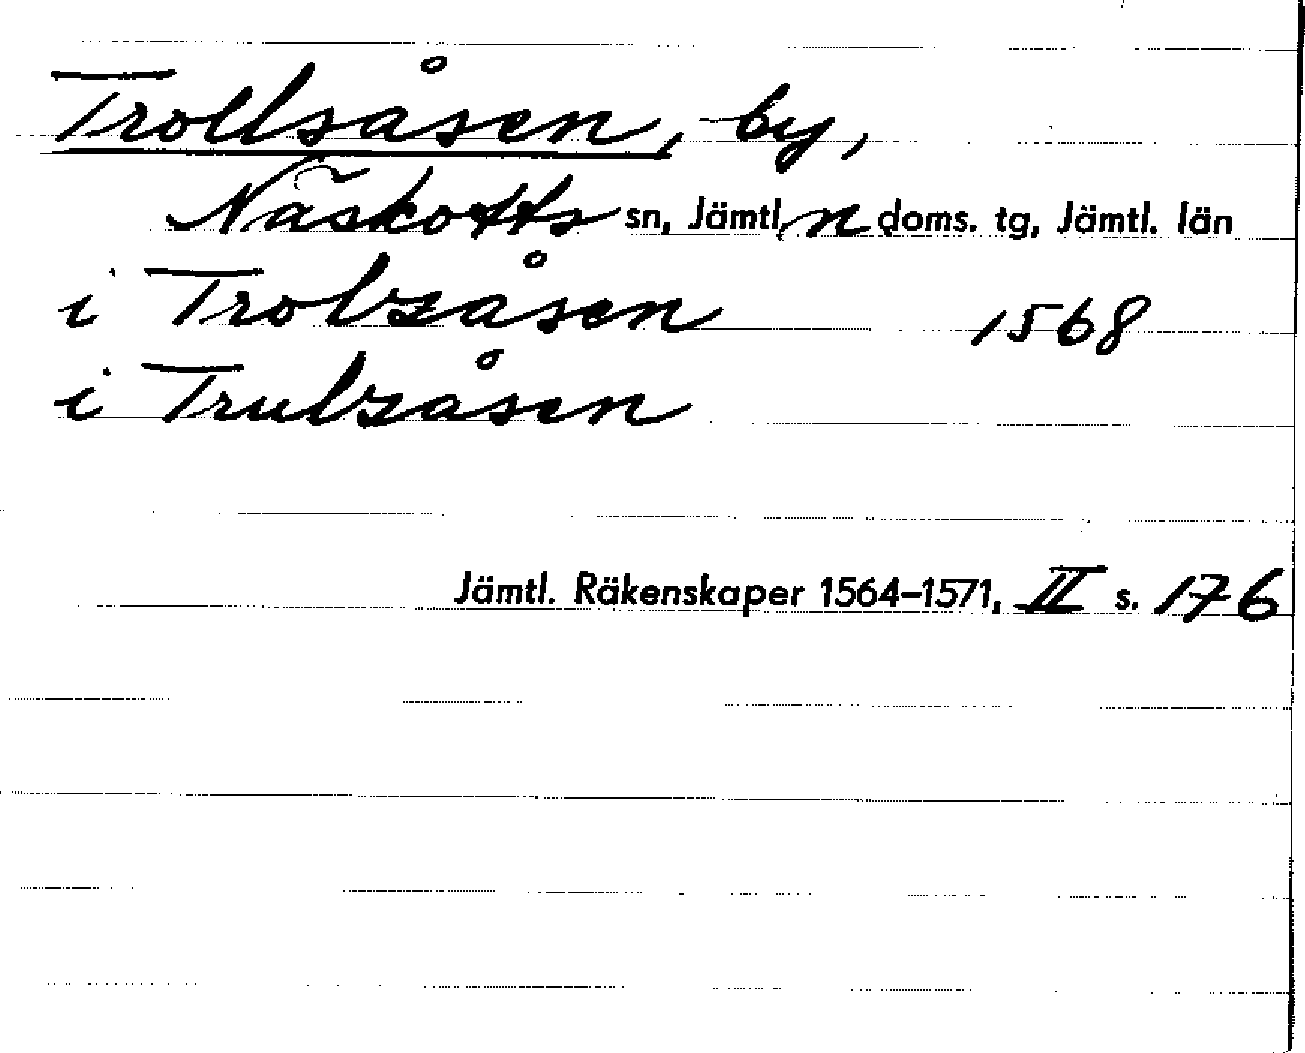 Trollsåsen, by,
Näskotts sn, Jämtl, n doms. tg, Jämtl. län
i Trolzåsen 1568
i Trulzåsen
Jämtl. Räkenskaper 1564-1571, II s. 176